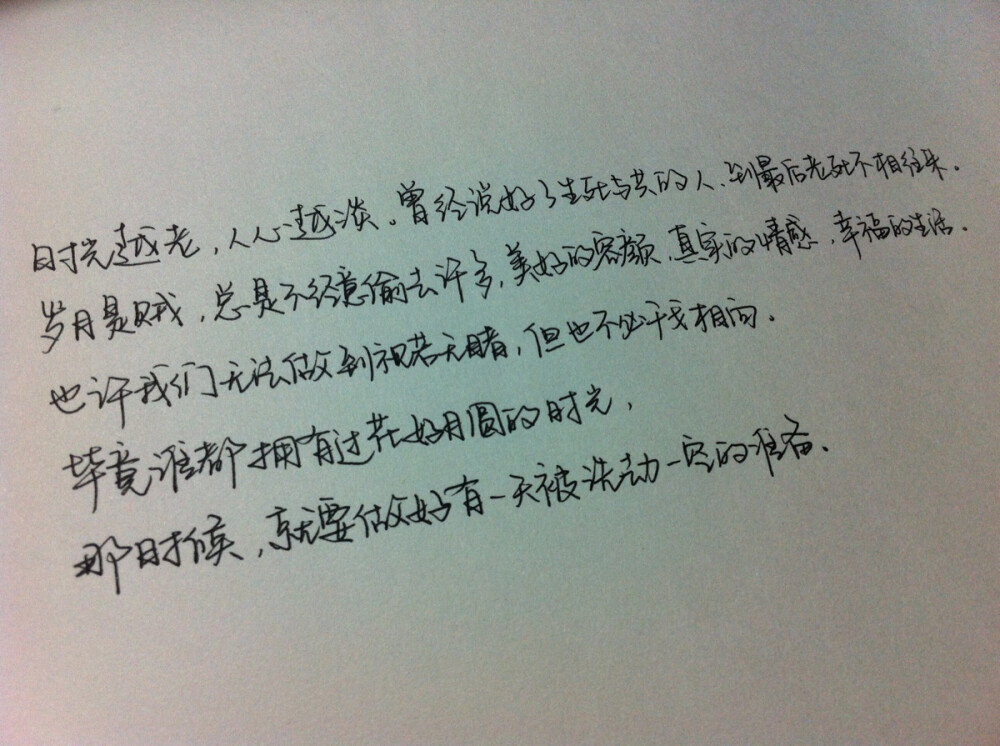 时光越老，人心越淡。曾经说好了生死与共的人、到最后老死不相往来。
岁月是贼，总是不经意偷去许多，美好的容颜，真实的情感，幸福的生活．
也许我们无法做到视若无睹，但也不必干戈相向．
毕竟谁都拥有过花好月圆的时光，
那时候，就要做好有一天被洗劫一空的准备．